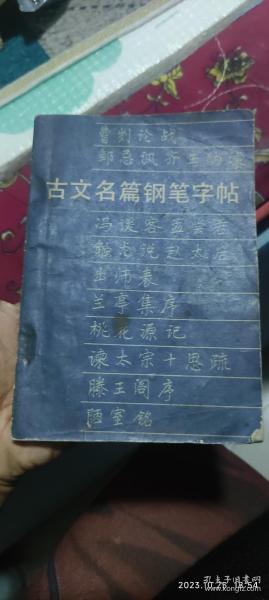 曹刿论战
邹忌讽齐王纳谏
古文名篇钢笔字帖
冯谖客孟尝君
触龙说赵太后
出师表
兰亭集序
桃花源记
谏太宗十思疏
滕王阁序
陋室铭
2023.10.26 18:54
孔夫子旧书网